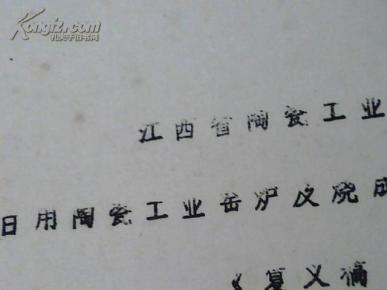 Kongfz.com
孔夫子旧书网
江西省陶瓷工业
日用陶瓷工业窑炉及烧成
《复义